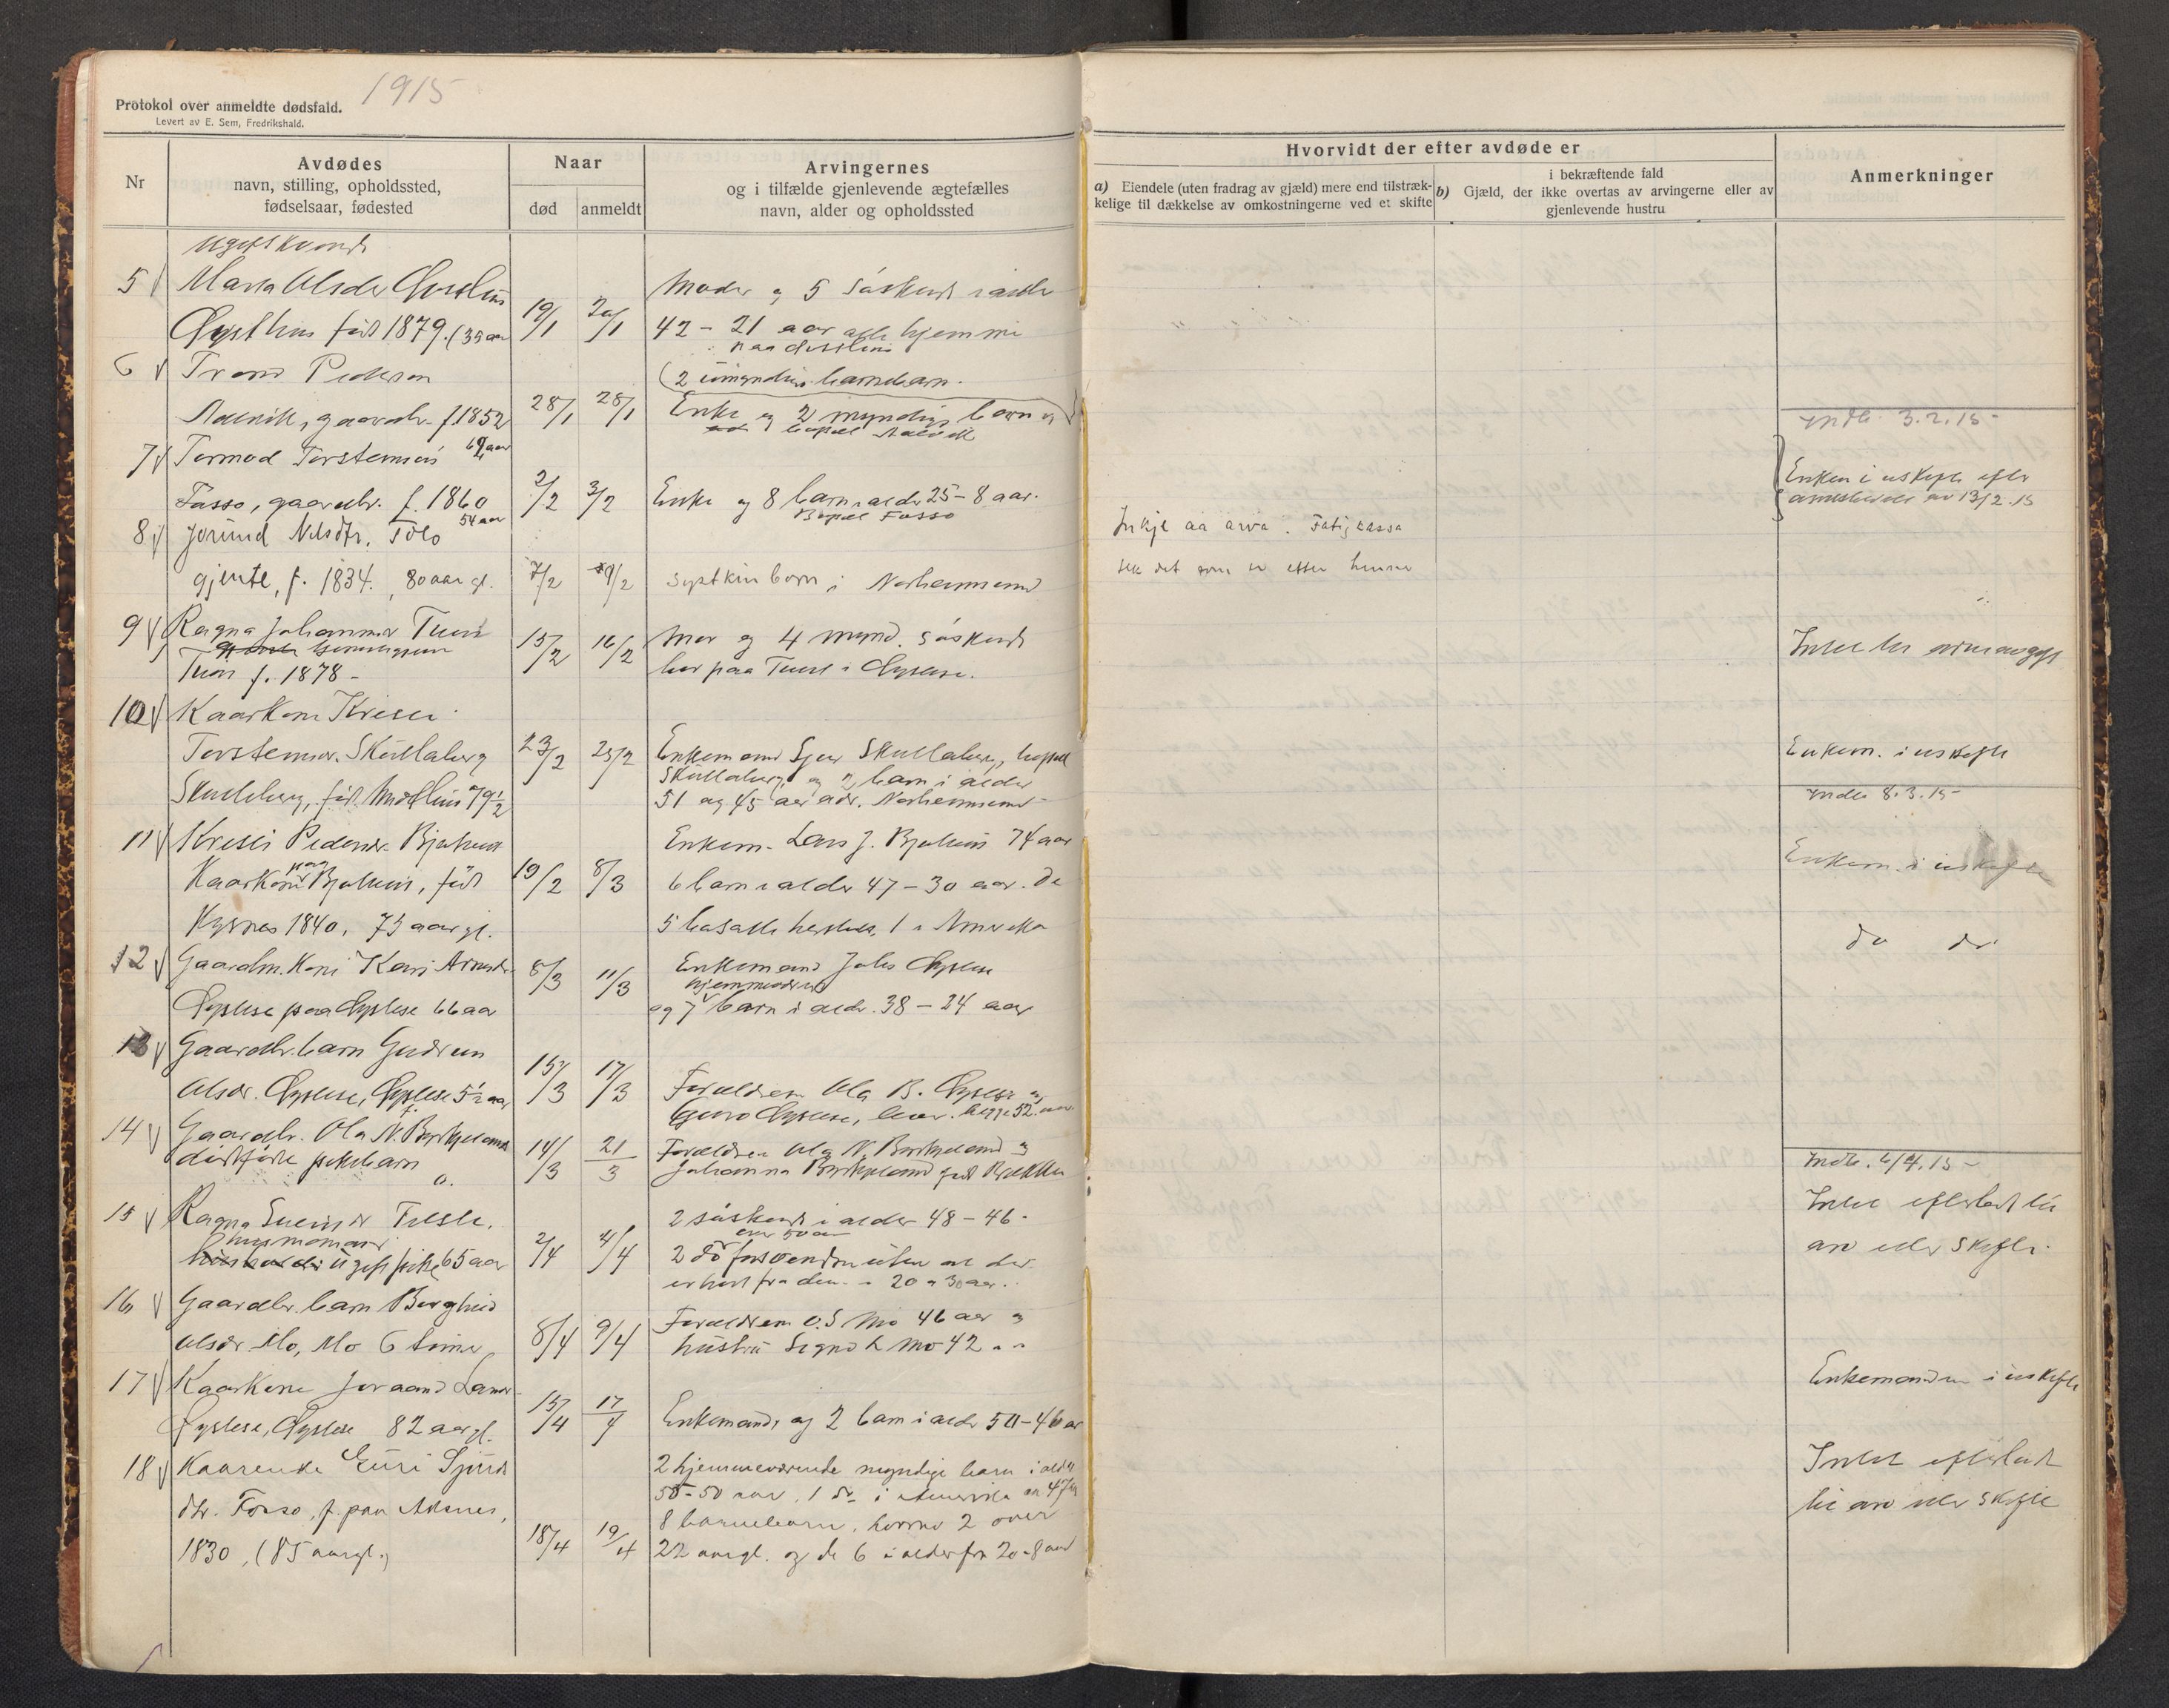 1915
Protokol over anmeldte dødsfald.
Levert av E. Sem, Fredrikshald.
Nr
Avdødes
navn, stilling, opholdssted,
fødselsaar, fødested
Naar
død
anmeldt
Arvingernes
og i tilfælde gjenlevende ægtefælles
navn, alder og opholdssted
Hvorvidt der efter avdøde er
a) Eiendele (uten fradrag av gjæld) mere end tilstræk-
kelige til dækkelse av omkostningerne ved et skifte
i bekræftende fald
b) Gjæld, der ikke overtas av arvingerne eller av
gjenlevende hustru
Anmerkninger
5 Marta Olsdtr
født 1879. (35 aar
19/1 20/1
Moder og 5 søskend i alder
42 - 21 aar alle hjemme
6 Trond Pederson
gaardbr. f. 1852
28/1 28/1
(2 umyndige barnebarn.
Enke og 2 myndige barn og
Indb. 3.2.15
7 Tormod Torsteinson
Fosso, gaardbr. f. 1860
54 aar
2/2 3/2
Enke og 8 barn i alder 25 - 8 aar.
Bopæl Fosso
Enken i uskifte efter
av 13/2 15
8 Jorund Nilsdtr. Tolo
gjente, f. 1834. 80 aar gl.
7/2 9/2
Systkinborn i Norheimsund
Inkje aa arva. Fatigkassa
fekk det som er etter henne
9 Ragna Johannesd Tun
Tun f. 1878 -
15/2 16/2
Mor og 4 mynd. søskend
bor paa Tun i Øystese.
Intet til arveavgift
10 Kaarkone Kristi
Torsteinsdr. Skutlaberg
Skutlaberg, født 79 1/2
23/2 25/2
Enkemand Sjur Skutlaberg, bopæl
Skutlaberg og 2 barn i alder
51 og 45 aar adr. Norheimsund
Enkem. i uskifte
Indb. 8.3.15
11 Kristi Pedersdr.
Kaarkone paa født
1840, 75 aar gl.
19/2 8/3
Enkem. Lars J. 74 aar
6 barn i alder 47 - 30 aar. De
5 1 i Amerika
Enkem. i uskifte
12 Gaardm. kone Kari
Øystese paa Øystese 66 aar
8/3 11/3
Enkemand Øystese
og 7 hjemmeværende barn i alder 38 - 24 aar
do do
13 Gaardbr. barn Gudrun
Olsdr. Øystese, Øystese 5 1/2 aar
15/3 17/3
Forældrene Ola B. Øystese og
Guro Øystese, begge 52 aar
14 Gaardbr. Ola N. Byrkjeland
dødfødte pikebarn
14/3 21/3
Forældrene Ola N. Byrkjeland og
Johanna Byrkjeland født
Indb. 6/4.15
15 Ragna
ugift pike 65 aar
2/4 4/4
2 søskend i alder 48 - 46
over 50 aar
20 a 30 aar.
Intet efterladt til
arv eller skifte.
16 Gaardbr. barn Borghild
Olsdr Mo, Mo 6 timer
8/4 9/4
Forældrene O. S. Mo 46 aar og
hustru Mo 42
17 Kaarkone Joraand Larsd
Øystese, Øystese 82 aar gl.
15/4 17/4
Enkemand, og 2 barn i alder 50 - 46 aar
Enkemanden i uskifte
18 Kaarenke Guri Sjurd
dtr. Fosso, f. paa Aksnes,
1830, (85 aar gl.)
18/4 19/4
2 hjemmeværende myndige barn i alder
- 50 aar, 1 do i Amerika
8 barnebarn, hvorav 2 over
22 aar gl. og de 6 i alder fra 20 - 8 aar
Intet efterladt
til arv eller skifte